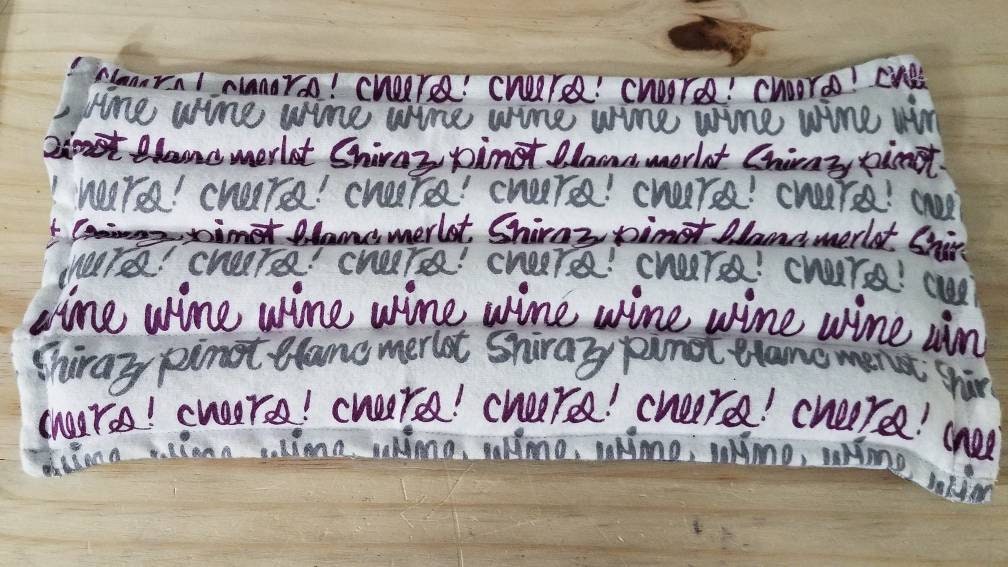 cheers! cheers! cheers! cheers! cheers! cheers!
wine wine wine wine wine wine wine wine win
pinot blanc merlot Shiraz pinot blanc merlot Shiraz pinot
cheers! cheers! cheers! cheers! cheers! cheers! chee
Shiraz pinot blanc merlot Shiraz pinot blanc merlot Shir
cheers! cheers! cheers! cheers! cheers! cheers! chee
wine wine wine wine wine wine wine wine win
Shiraz pinot blanc merlot Shiraz pinot blanc merlot Shir
cheers! cheers! cheers! cheers! cheers! cheers! chee
wine wine wine wine wine wine wine wine win